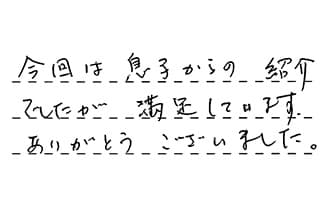 今回は 息子からの 紹介
でしたが 満足しています.
ありがとう ございました。